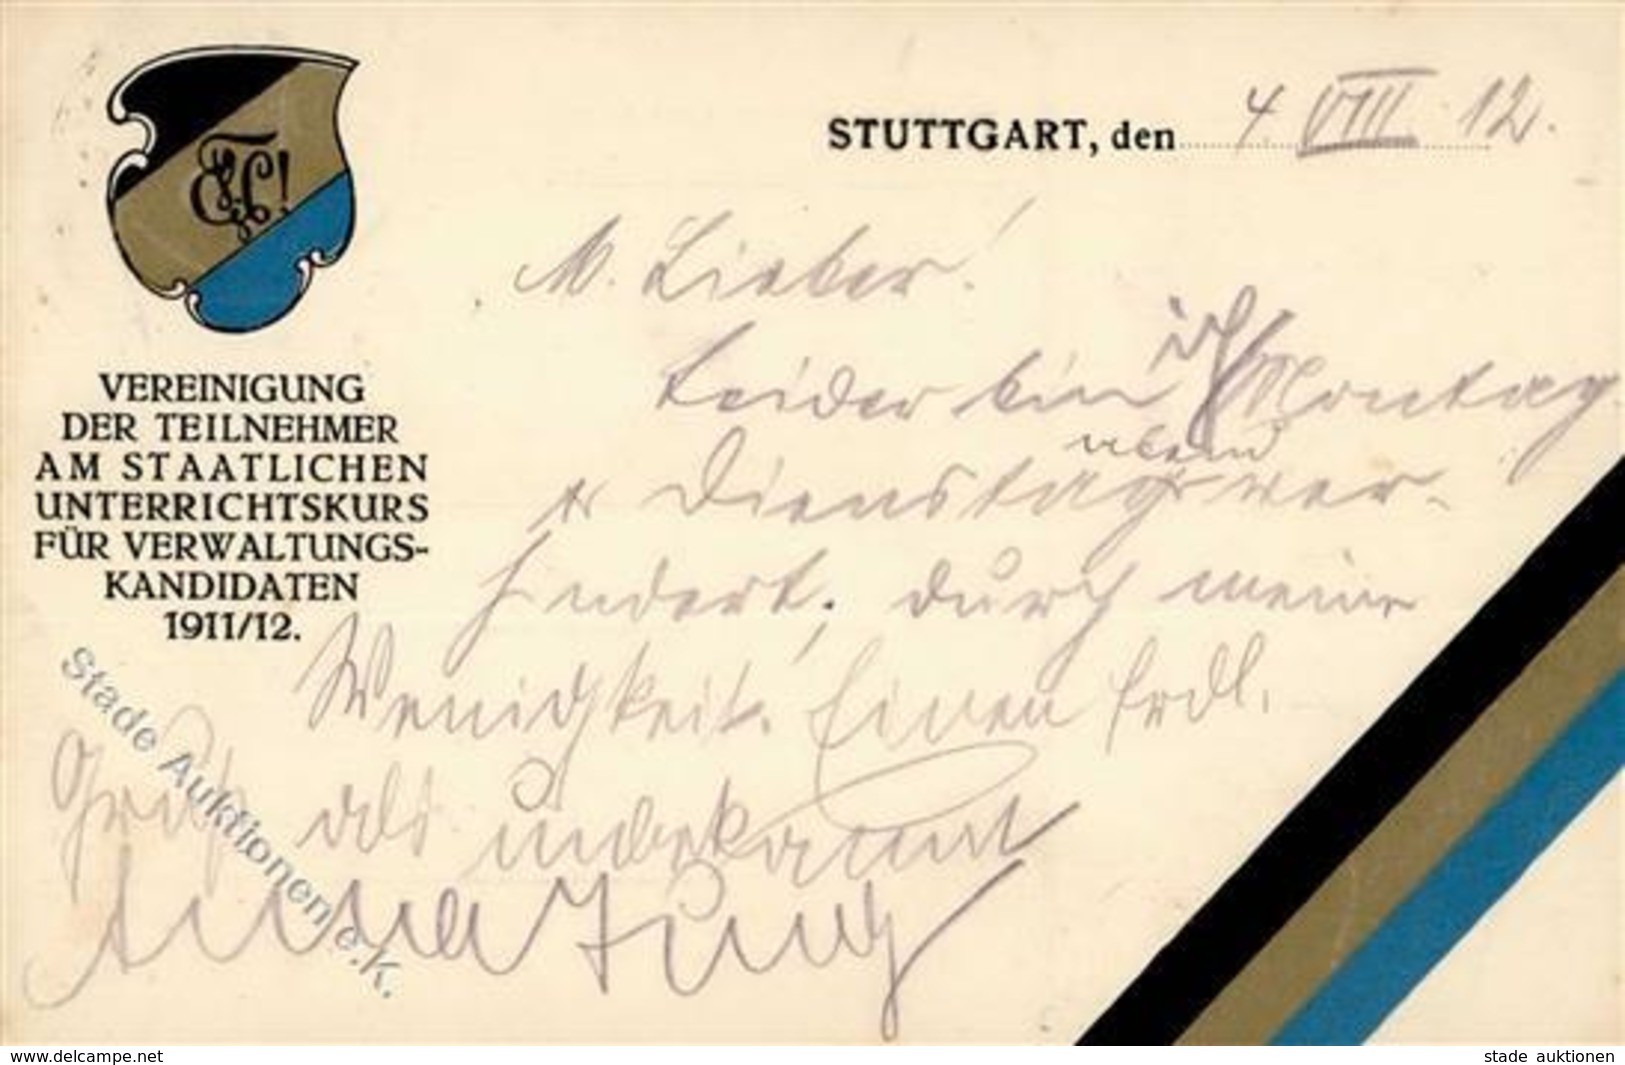 STUTTGART, den 4. VIII. 12.
VEREINIGUNG
DER TEILNEHMER
AM STAATLICHEN
UNTERRICHTSKURS
FÜR VERWALTUNGS-
KANDIDATEN
1911/12.
M. Lieber!
Leider bin ich Montag
Dienstag abend ver-
hindert, durch meine
Wenigkeit. Einen frdl.
Gruß als unbekannt
Stade Auktionen e.K.
www.delcampe.net
stade auktionen